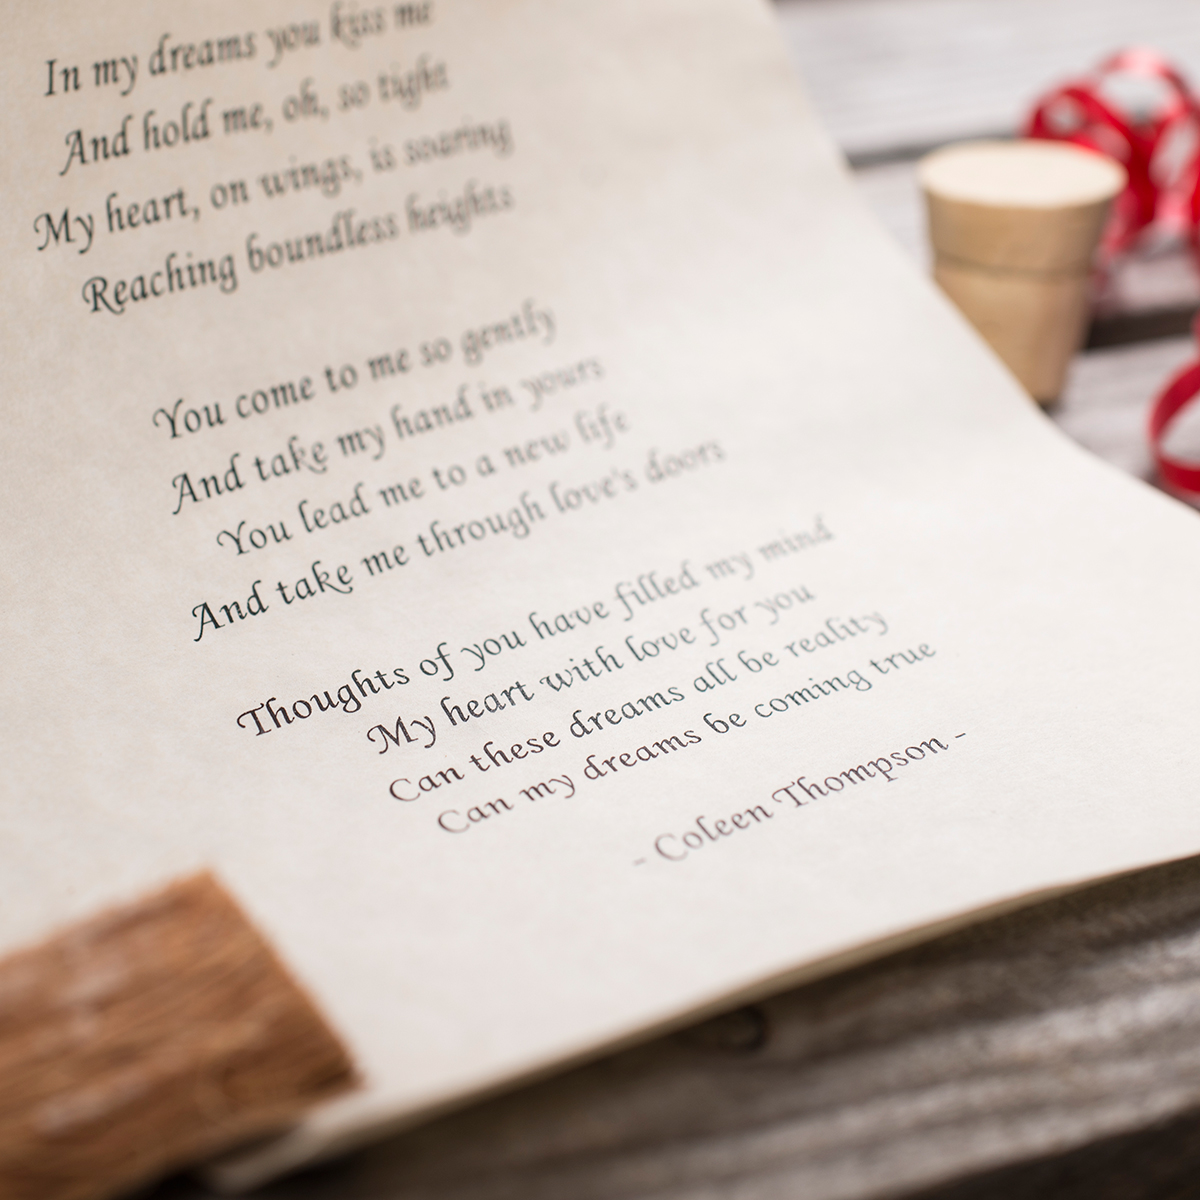 In my dreams you kiss me
And hold me, oh, so tight
My heart, on wings, is soaring
Reaching boundless heights
You come to me so gently
And take my hand in yours
You lead me to a new life
And take me through love's doors
Thoughts of you have filled my mind
My heart with love for you
Can these dreams all be reality
Can my dreams be coming true
- Coleen Thompson -